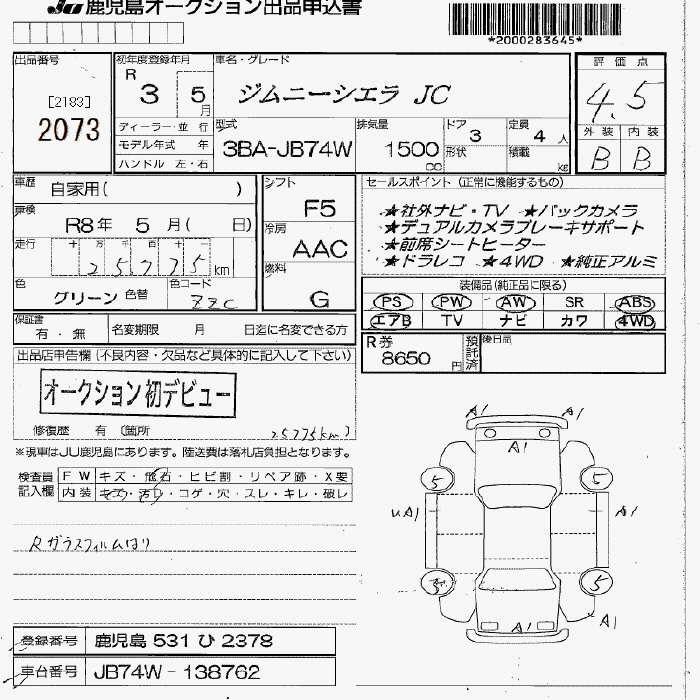 JU 鹿児島オークション出品申込書
*2000283645*
出品番号
[2183]
2073
初年度登録年月
R
3 5月
車名・グレード
ジムニーシエラ JC
評価点
4.5
ディーラー・並行
モデル年式 年
ハンドル 左・右
型式
3BA-JB74W
排気量
1500 cc
ドア 3
形状
定員 4 人
積載 kg
外装 内装
B B
車歴 自家用( )
車検 R8年 5月( 日)
走行 十万千百十一
25775km
色 グリーン 色替
色コード ZZC
シフト
F5
冷房
AAC
燃料
G
セールスポイント (正常に機能するもの)
★社外ナビ・TV ★バックカメラ
★デュアルカメラブレーキサポート
★前席シートヒーター
★ドラレコ ★4WD ★純正アルミ
装備品(純正品に限る)
PS PW AW SR ABS
エアB TV ナビ カワ 4WD
保証書
有・無
名変期限 月 日迄に名変できる方
R券
8650 円
預託済
後日品
出品店申告欄(不良内容・欠品など具体的に記入して下さい)
オークション初デビュー
修復歴 有 〔箇所
25775km)
※現車はJU鹿児島にあります。陸送費は落札店負担となります。
検査員記入欄
FW キズ・飛石・ヒビ割・リペア跡・X要
内装 キズ・汚れ・コゲ・穴・スレ・キレ・破レ
Rガラスフィルムはり
A1 A1
A1
5 5
A1 A1
5 5
A1 A1
登録番号 鹿児島 531 ひ 2378
車台番号 JB74W-138762